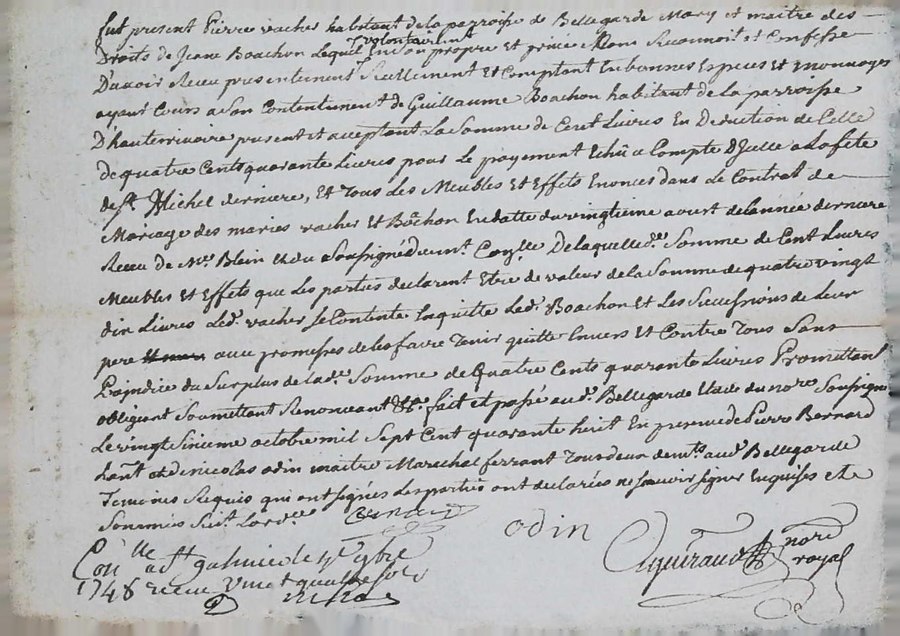 fut present Pierre vacher habitant de la parroisse de Bellegarde Mary et maitre des
Droits de Jeane Boachon Lequel volontairemt En son propre et privé Nom Reconnoit et Confesse
D'avoir Receu presentement Reellement Et Comptant En bonnes Especes Et monnoyes
ayant Cours a Son Contentement de Guillaume Boachon habitant de la parroisse
D'hauterivoire present et acceptant La Somme de Cent Livres En Deduction de Celle
de quatre Cents quarante Livres pour Le payement Echû a Compte D'Jcelle a La fete
de St. Michel derniere, Et Tous Les Meubles Et Effets Enoncés dans Le Contrat de
Mariage des mariés vacher Et Boachon En datte du vingtieme aoust de L'année derniere
Receu de Me. Blein Et du Soussigné duemt. Con.lle De laquelle de. Somme de Cent Livres
Meubles Et Effets que Les parties declarent Etre de valeur de la Somme de quatre vingt
dix Livres Led. vacher Se Contente En quitte Led. Boachon Et Les Successions de Leur
pere avec promesses de Les faire Tenir quitte Envers Et Contre Tous Sans
Prejudice du Surplus de lade. Somme de Quatre Cents quarante Livres Promettant
obligeant Soumettant Renonceant &c. fait et passé aud. Bellegarde Etude du nore. Soussigné
Le vingt Sixieme octobre mil Sept Cent quarante huit En presence de Pierre Bernard
et de nicolas odin maitre Marechal ferrant Tous deux demts. aud. Bellegarde
Temoins Requis qui ont signés Les parties ont declarées ne Scavoir signer Enquises et
Sommés Suit. Lordce.
odin
nore
royal
Con.lle a St galmier le
1748 receu vingt quatre sols